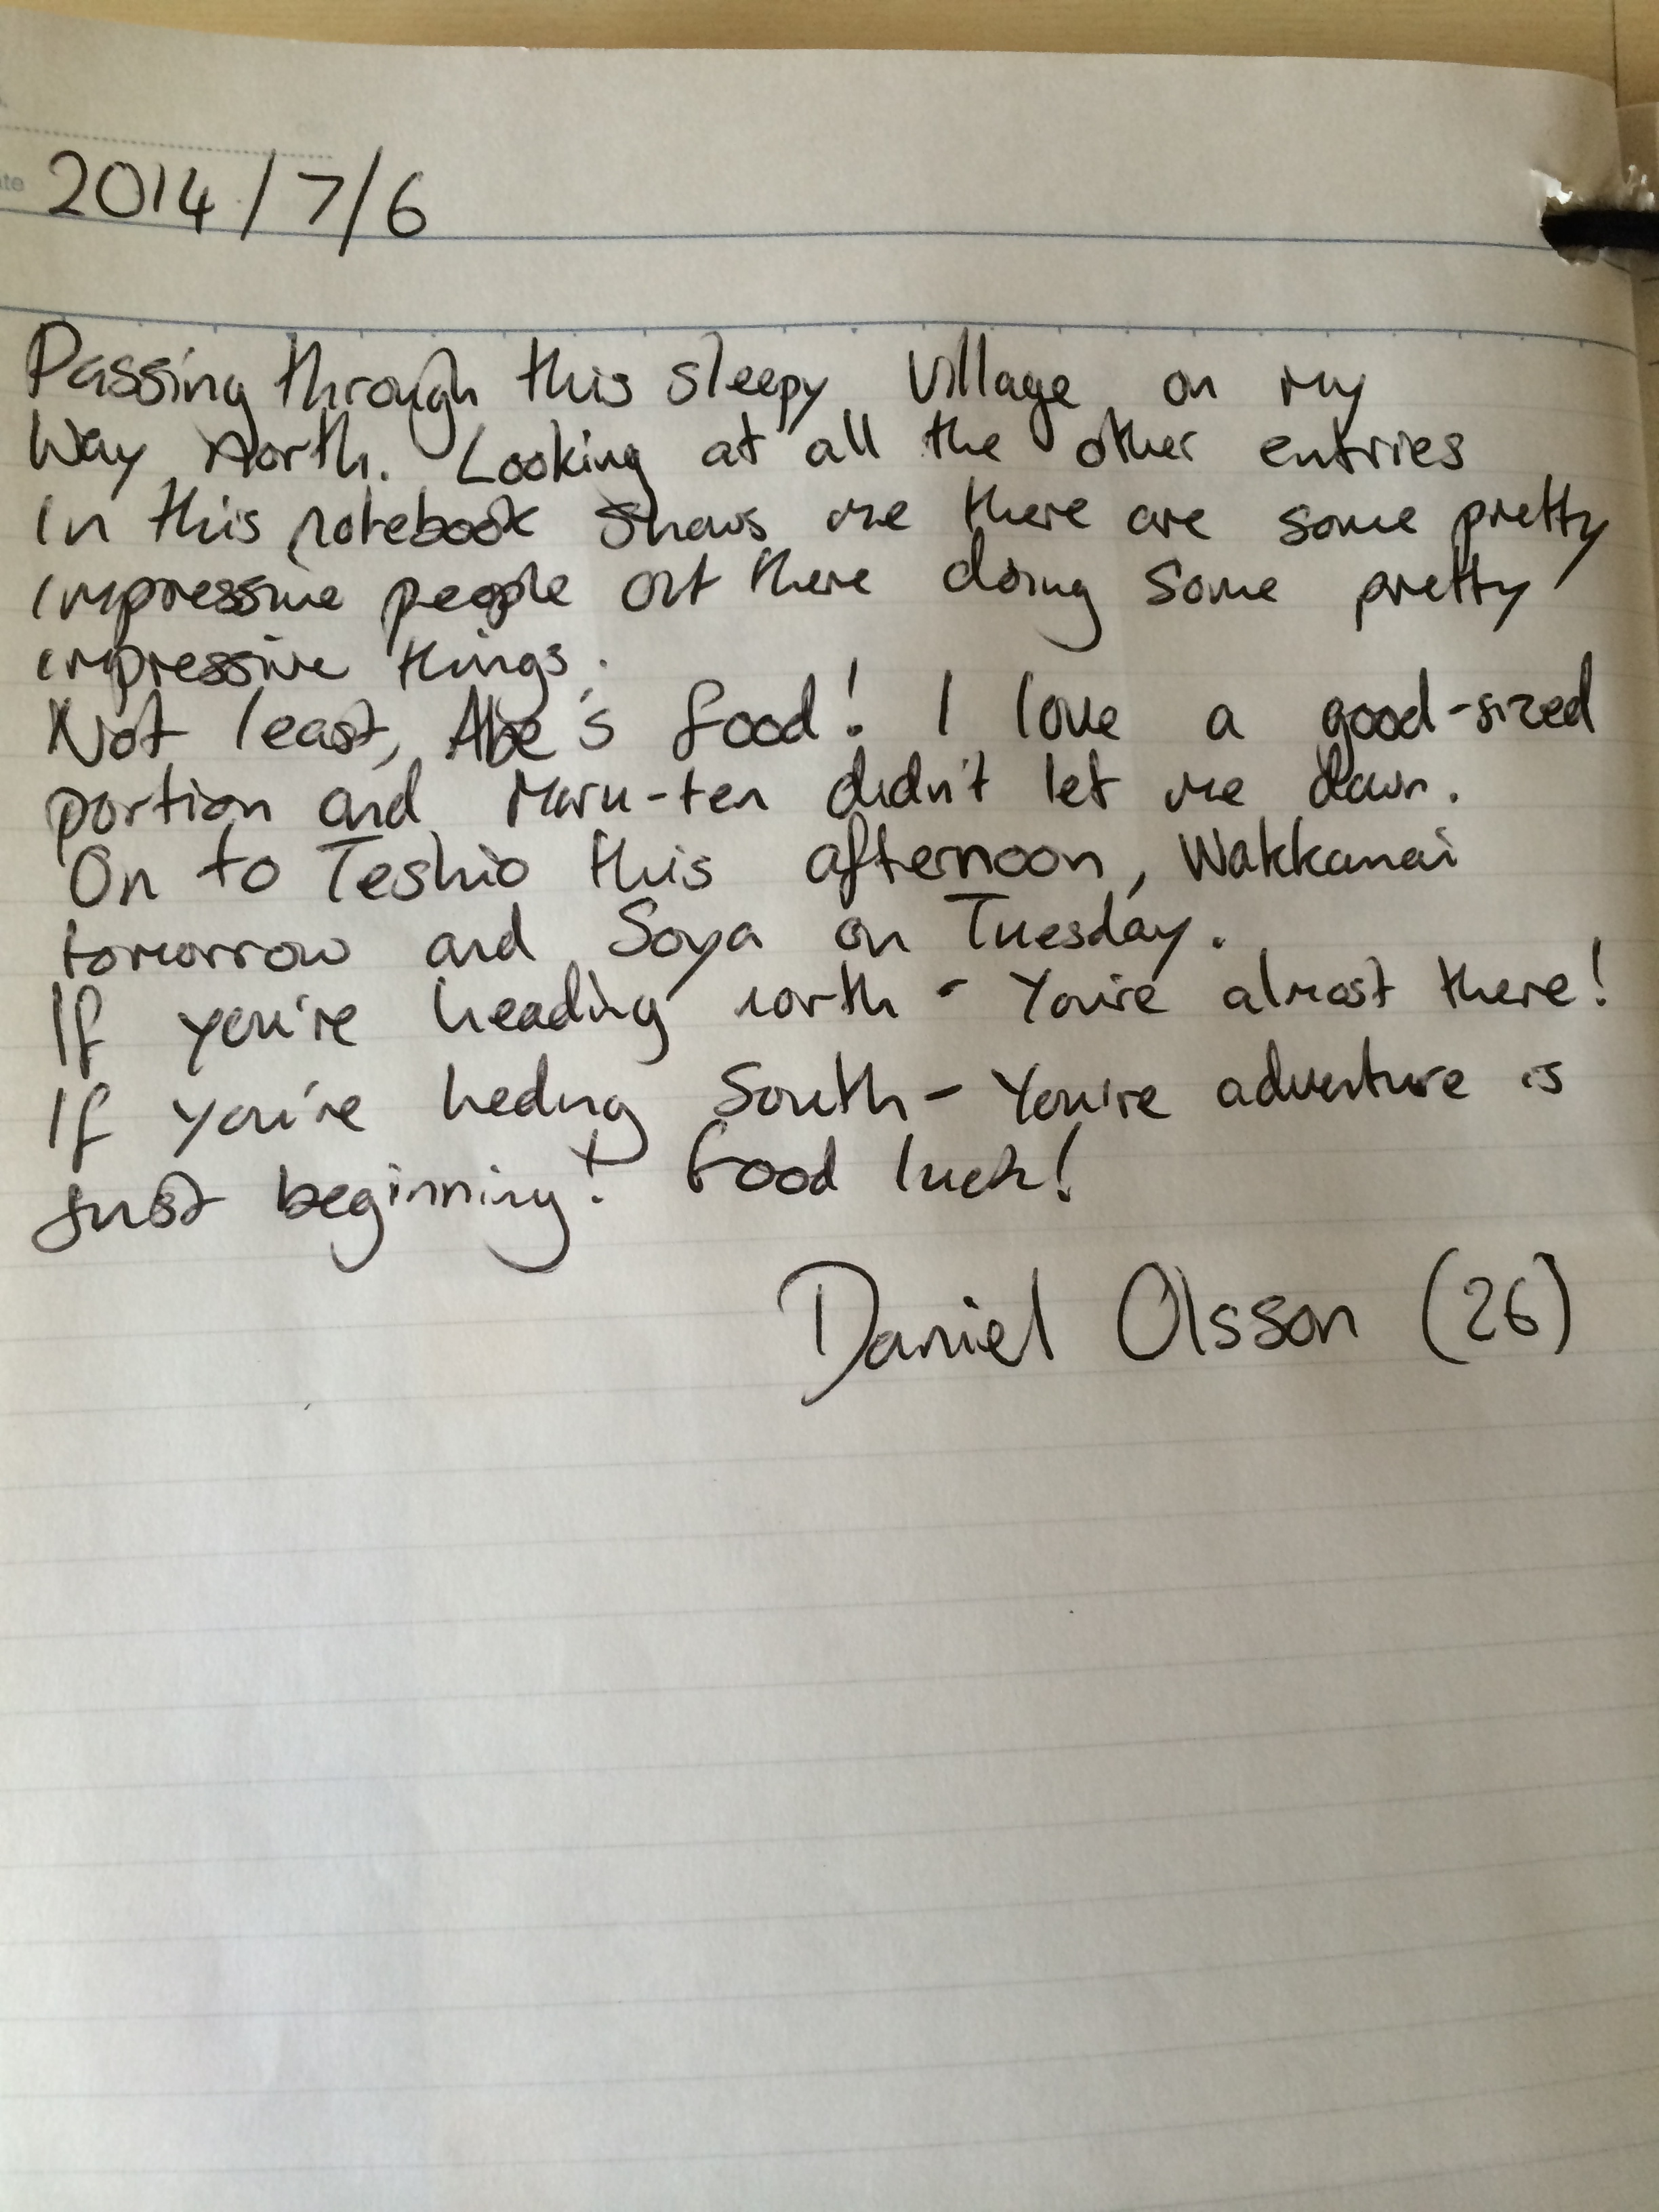 2014/7/6
Passing through this sleepy village on my
way north. Looking at all the other entries
in this notebook shows me there are some pretty
impressive people out there doing some pretty
impressive things.
Not least, Abe's food! I love a good-sized
portion and Maru-ten didn't let me down.
On to Teshio this afternoon, Wakkanai
tomorrow and Soya on Tuesday.
If you're heading north - You're almost there!
If you're heding South - You're adventure is
just beginning! Good luck!
Daniel Olsson (26)